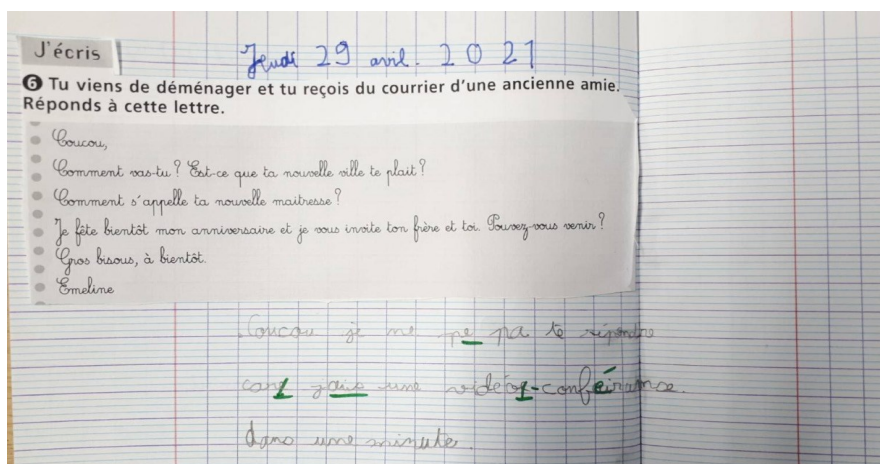 J'écris
Jeudi 29 avril. 2021
6 Tu viens de déménager et tu reçois du courrier d'une ancienne amie.
Réponds à cette lettre.
Coucou,
Comment vas-tu ? Est-ce que ta nouvelle ville te plait ?
Comment s'appelle ta nouvelle maitresse ?
Je fête bientôt mon anniversaire et je vous invite ton frère et toi. Pouvez-vous venir ?
Gros bisous, à bientôt.
Emeline
Coucou je ne pe pa te répondre
car jais une vidéo-conféiranse.
dans une minute.